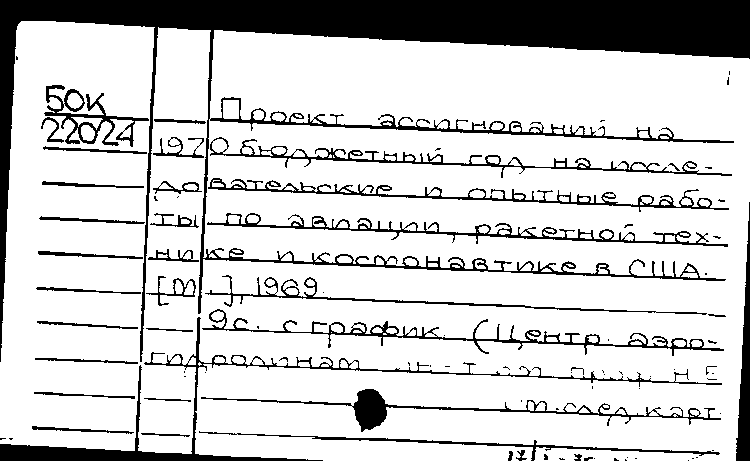 БОК
22024
Проект ассигнований на
1970 бюджетный год на иссле-
довательские и опытные рабо-
ты по авиации, ракетной тех-
нике и космонавтике в США.
[М.], 1969.
9с. с график. (Центр. аэро-
гидродинам ин-т им проф Н Е
см. след. карт